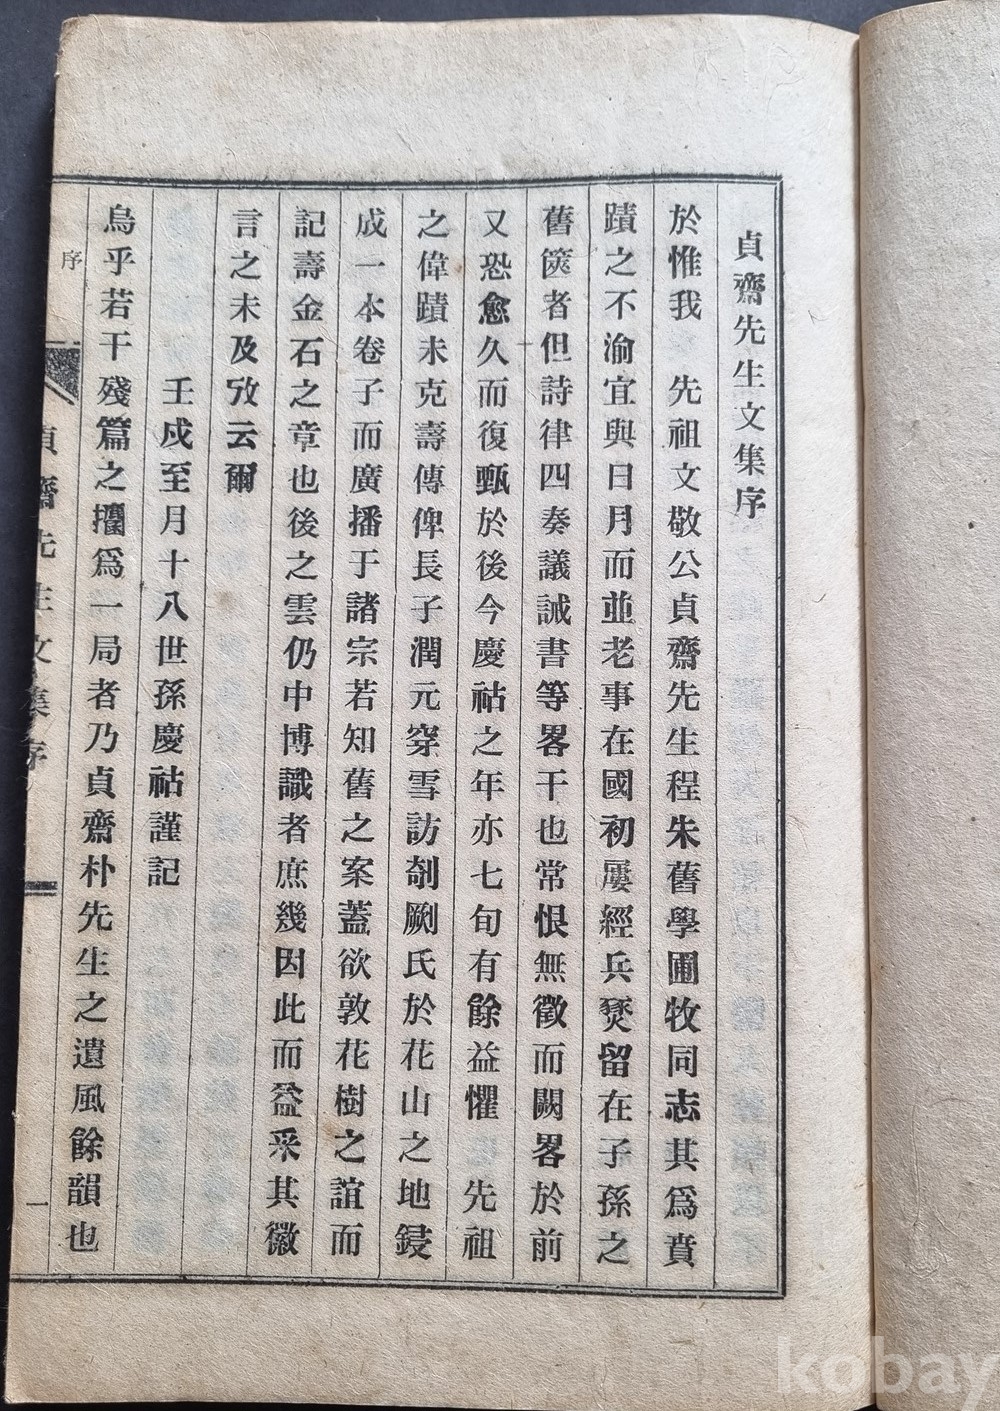 貞齋先生文集序
於惟我 先祖文敬公貞齋先生程朱舊學圃牧同志其爲賁
蹟之不渝宜與日月而並老事在國初屢經兵燹留在子孫之
舊篋者但詩律四奏議誡書等畧干也常恨無徵而闕畧於前
又恐愈久而復甄於後今慶祜之年亦七旬有餘益懼 先祖
之偉蹟未克壽傳俾長子潤元穿雪訪剞劂氏於花山之地鋟
成一本卷子而廣播于諸宗若知舊之案蓋欲敦花樹之誼而
記壽金石之章也後之雲仍中博識者庶幾因此而益釆其徽
言之未及攷云爾
壬戌至月十八世孫慶祜謹記
烏乎若干殘篇之攟爲一局者乃貞齋朴先生之遺風餘韻也
序
貞齋先生文集序
一
kobay